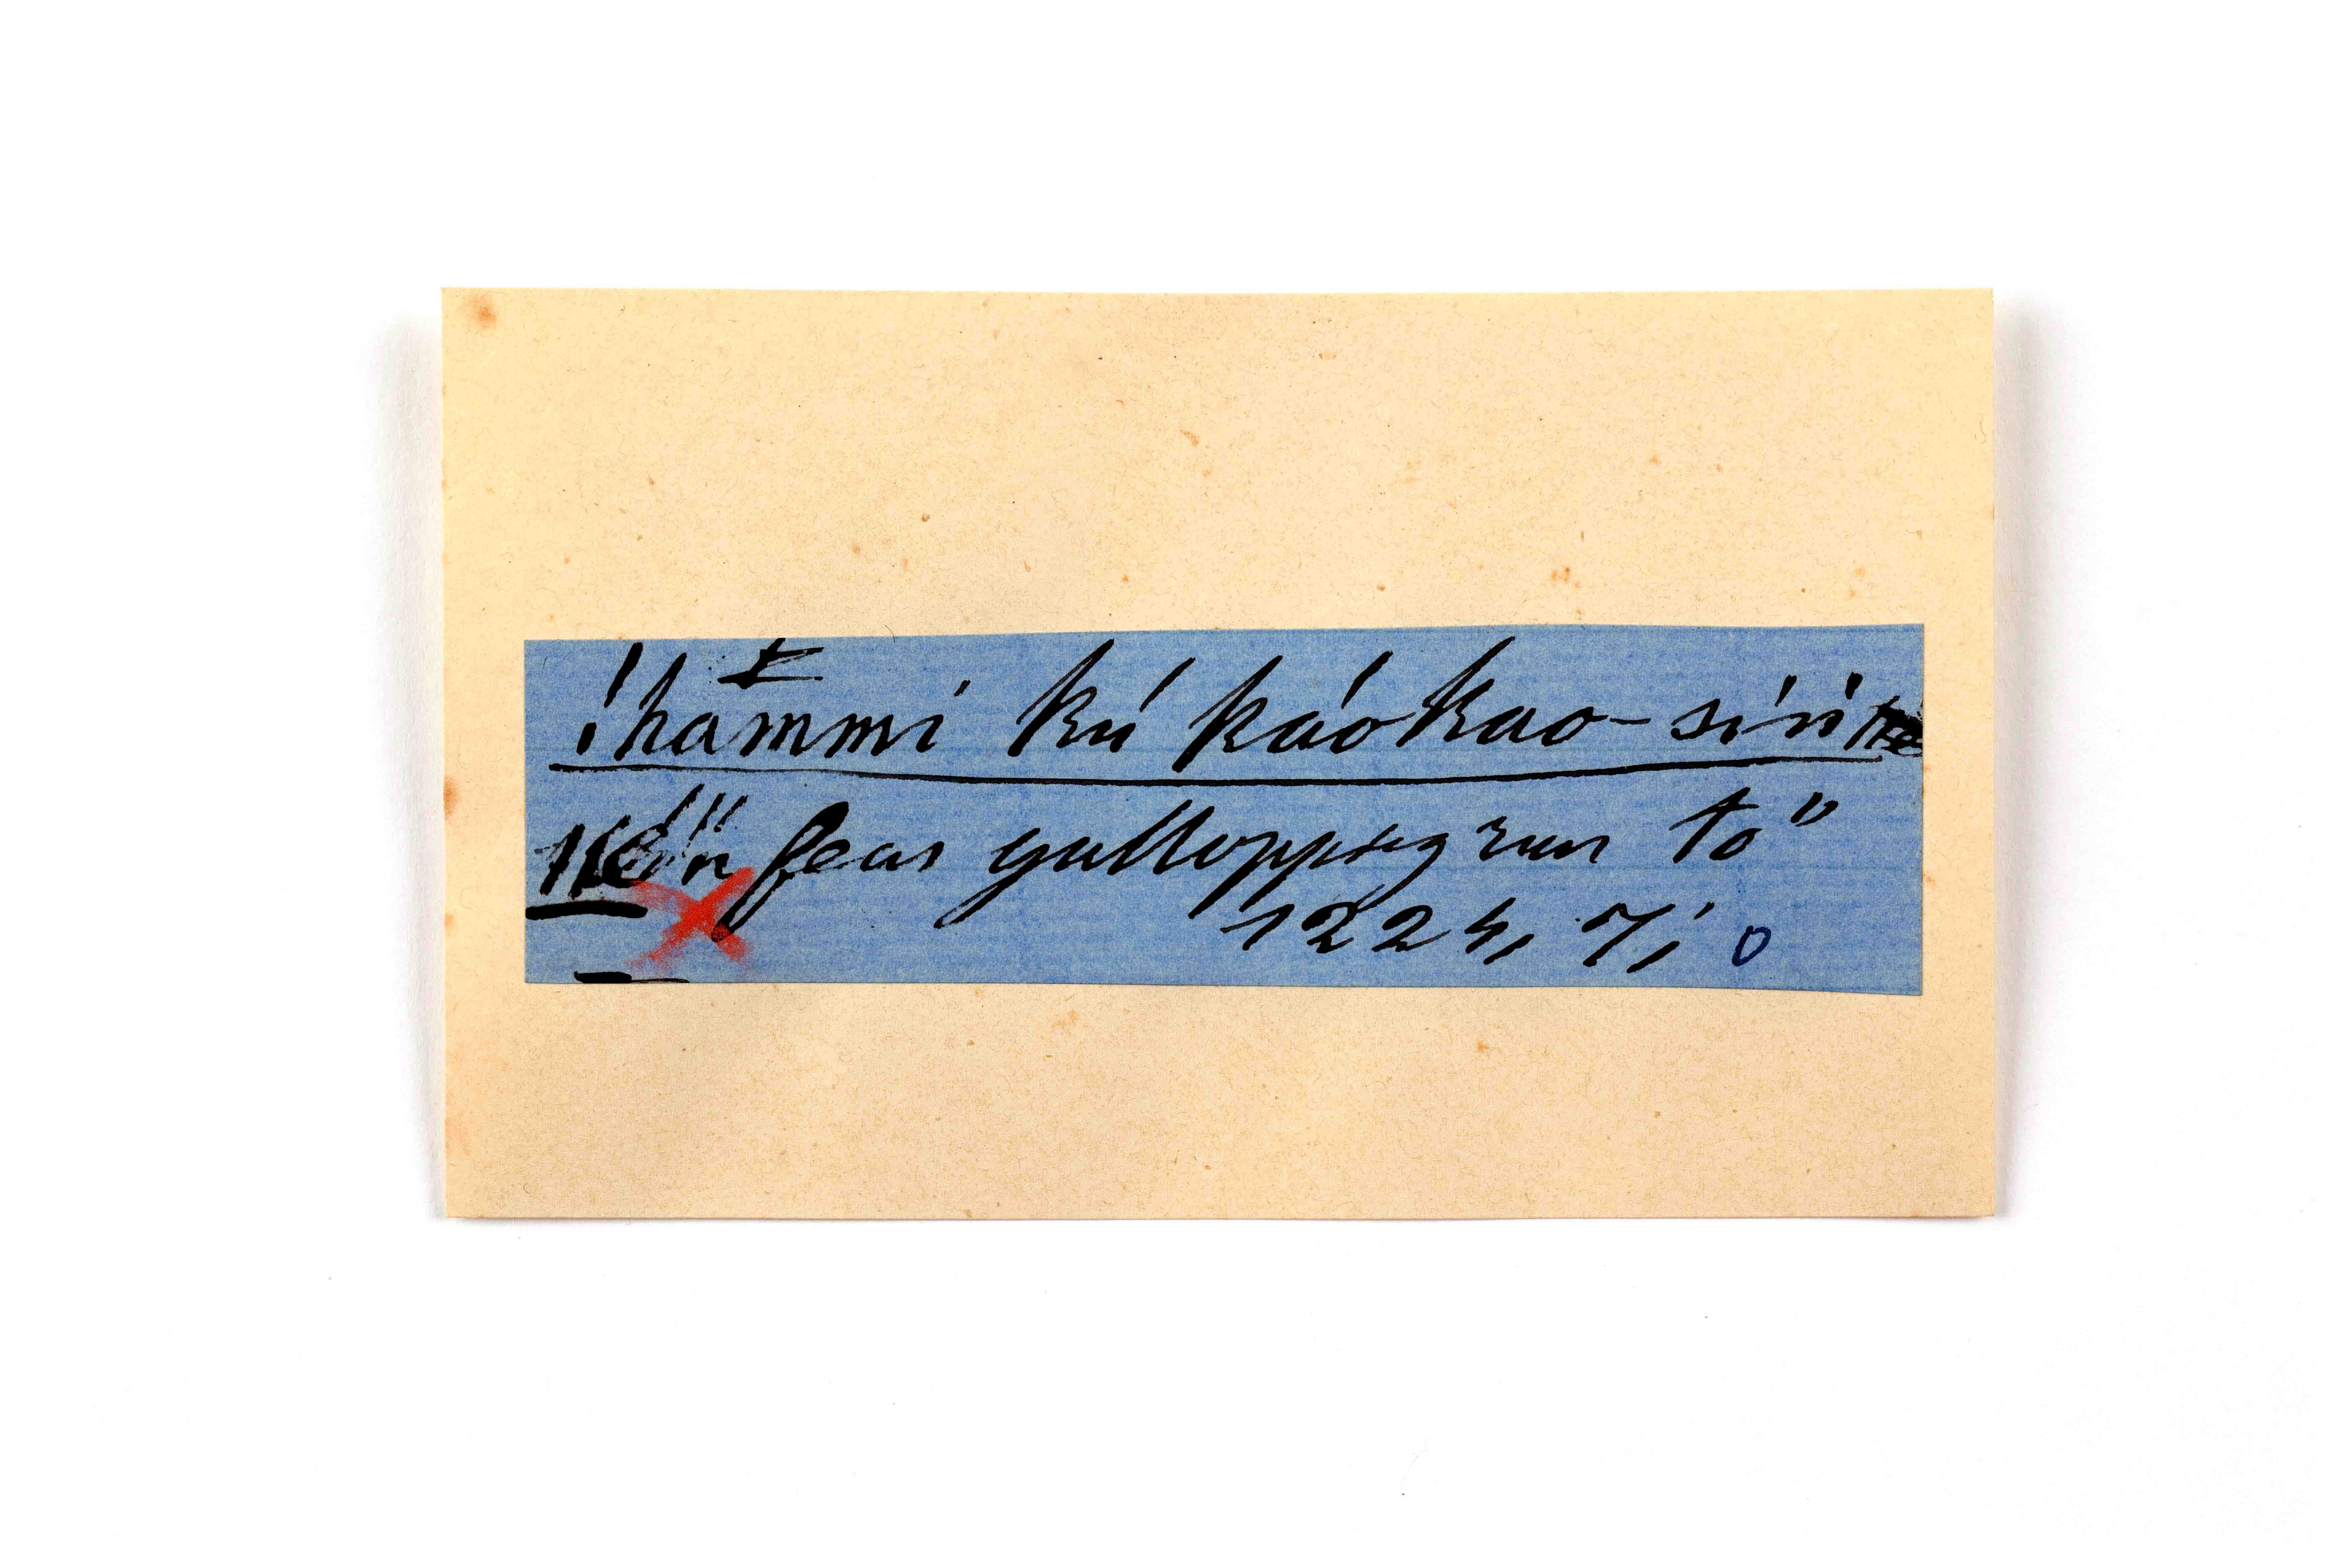 !hammi kú káokao-síń
fear galloping run to"
1224, 7; 0